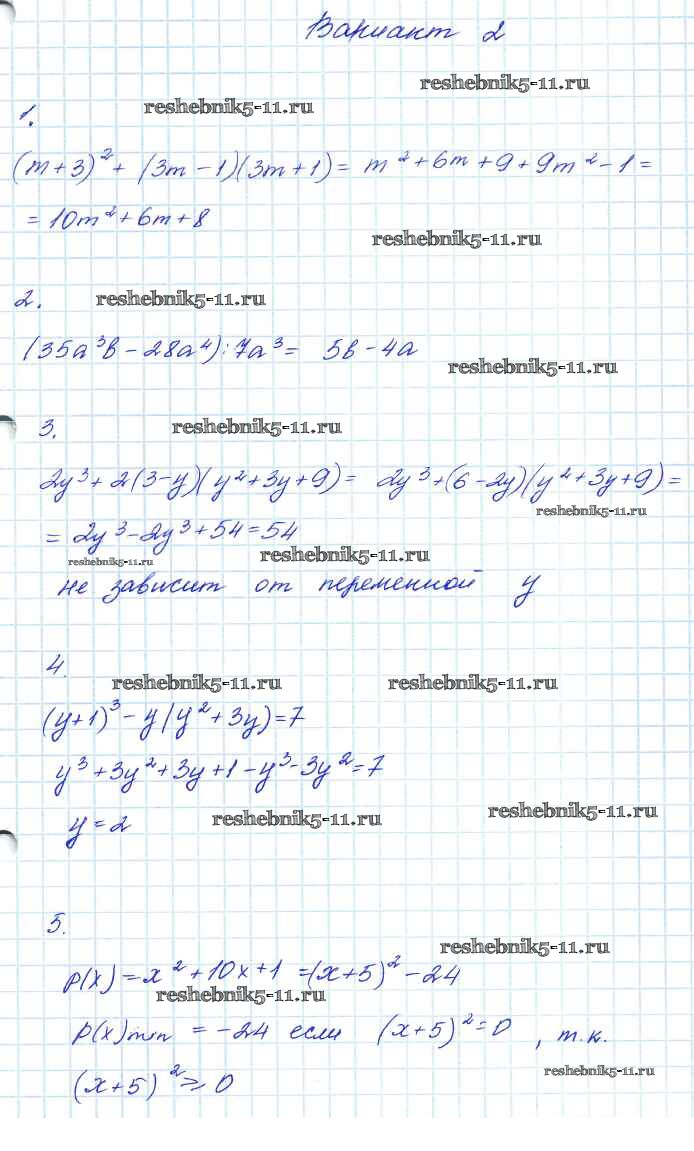 Вариант 2
reshebnik5-11.ru
reshebnik5-11.ru
1.
(m+3)² + (3m-1)(3m+1) = m² + 6m + 9 + 9m² - 1 =
= 10m² + 6m + 8
reshebnik5-11.ru
2.
reshebnik5-11.ru
(35a³b - 28a⁴):7a³ = 5b - 4a
reshebnik5-11.ru
3.
reshebnik5-11.ru
2y³ + 2(3-y)(y²+3y+9) = 2y³+(6-2y)(y²+3y+9) =
reshebnik5-11.ru
= 2y³-2y³+54=54
reshebnik5-11.ru
reshebnik5-11.ru
не зависит от переменной y
4.
reshebnik5-11.ru
reshebnik5-11.ru
(y+1)³ - y(y²+3y)=7
y³+3y²+3y+1-y³-3y²=7
y=2
reshebnik5-11.ru
reshebnik5-11.ru
5.
reshebnik5-11.ru
p(x)=x²+10x+1 =(x+5)²-24
reshebnik5-11.ru
p(x)min = -24 если (x+5)²=0, т.к.
(x+5)²≥0
reshebnik5-11.ru